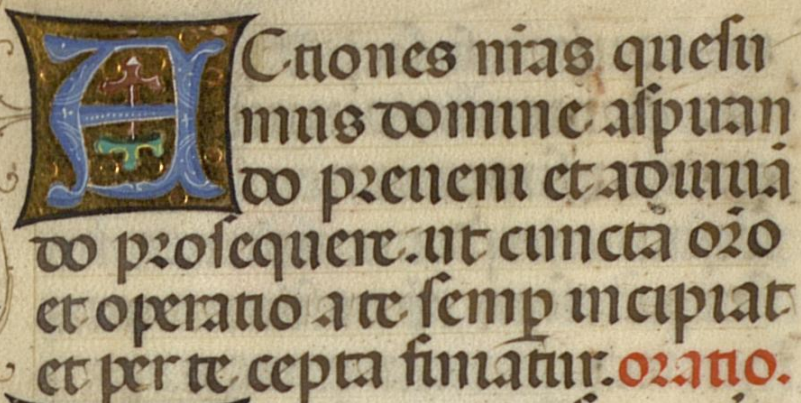 ACtiones nr̄as quesu
mus domine aspiran
do preueni et adiuuā
do prosequere. ut cuncta or̄o
et operatio a te semꝑ incipiat
et per te cepta finiatur. oratio.